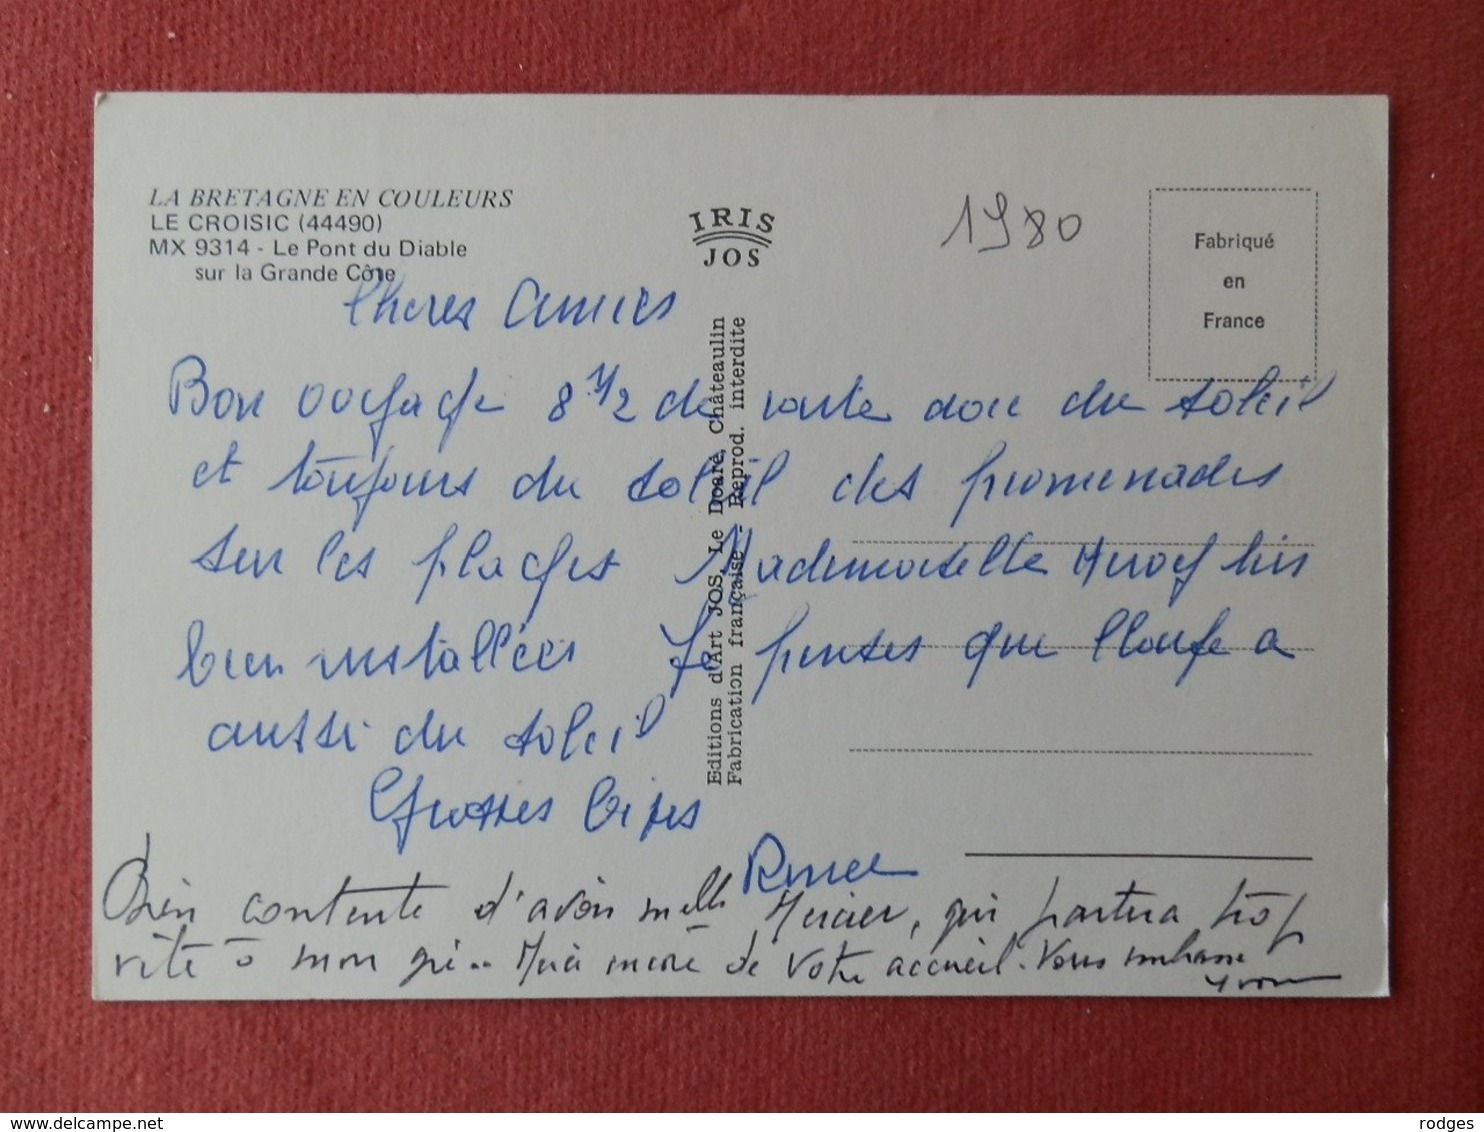 LA BRETAGNE EN COULEURS
LE CROISIC (44490)
MX 9314 - Le Pont du Diable
sur la Grande Côte
IRIS
JOS
1980
Fabriqué
en
France
Editions d'Art JOS, Le Doaré, Châteaulin
Fabrication française - Reprod. interdite
Cheres Amies
Bon voyage 8 1/2 de route avec du soleil
et toujours du soleil des promenades
sur les plages Mademoiselle
bien installées Je penses que a
aussi du soleil
Grosses bises
Renee
Bien contente d'avoir melle Mercier, qui partira trop
vite à mon gré.. Merci encore de votre accueil. Vous embrasse
Yvonne
www.delcampe.net
rodges